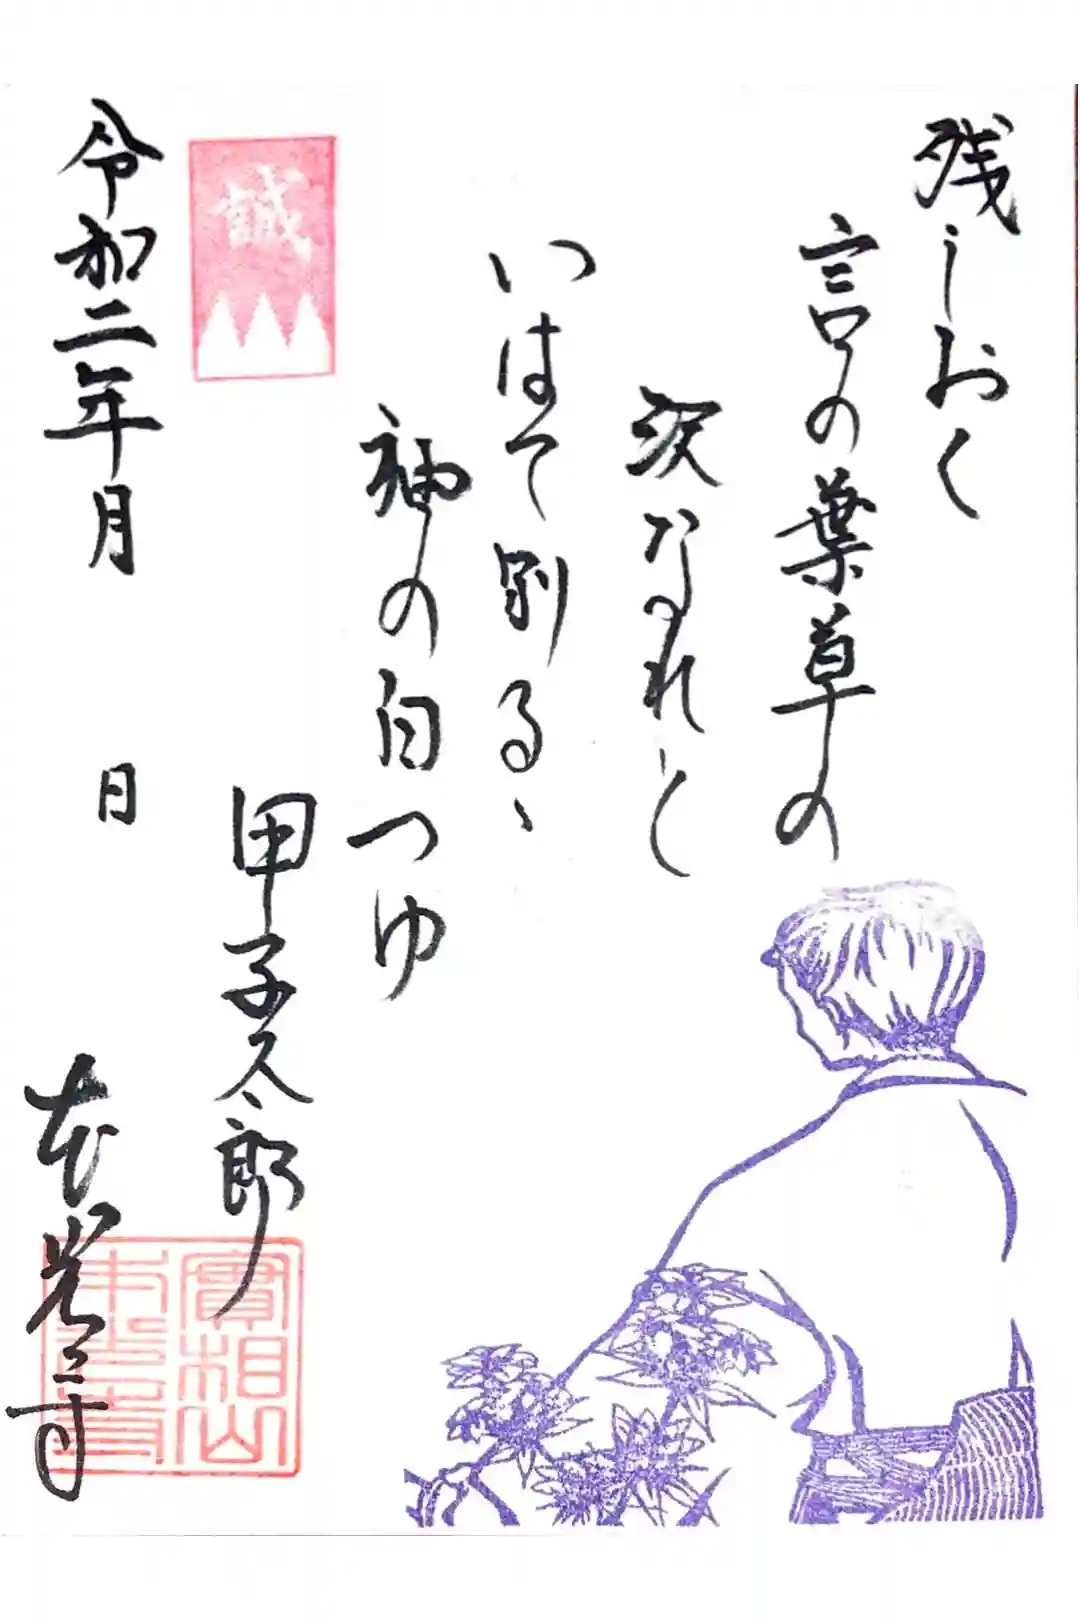 残しおく
言の葉草の
沢なれと
いはて別るゝ
袖の白つゆ
誠
甲子太郎
令和二年月
日
本光寺
實相山
本光寺